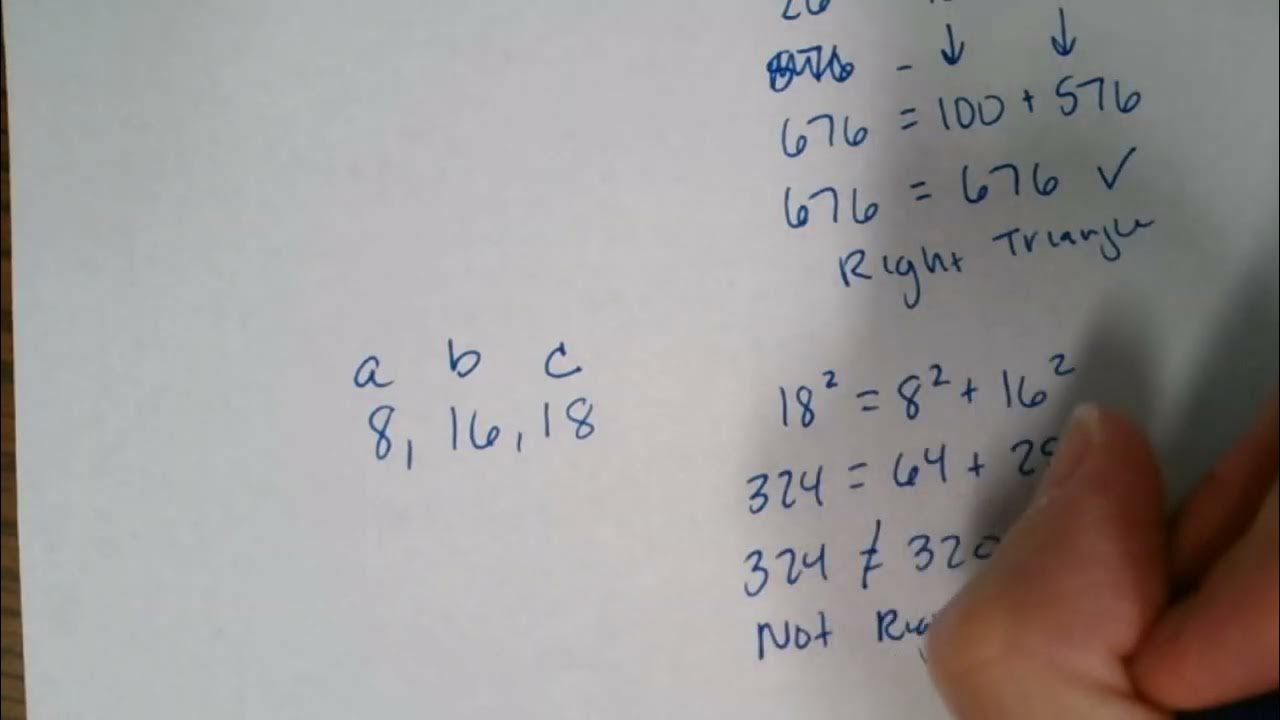 26
676 = 100 + 576
676 = 676 ✓
Right Triangle
a b c
8, 16, 18
18² = 8² + 16²
324 = 64 +
324 ≠ 320
Not